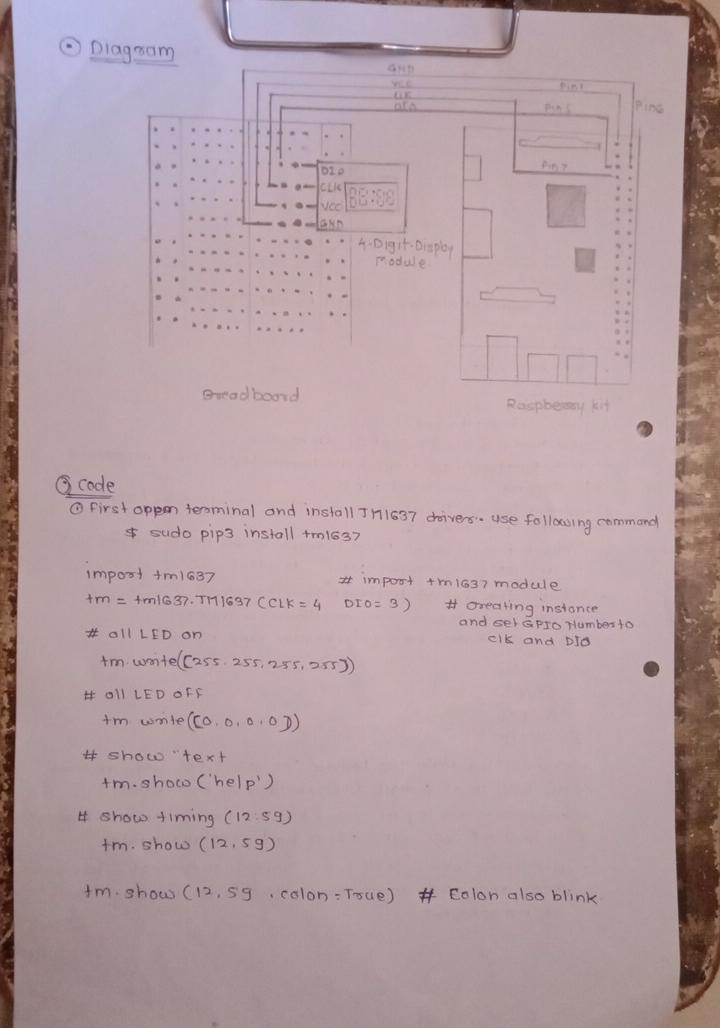 Diagram
GND
VCC
Pin1
CLK
DIO
Pin5
Pin6
Pin7
DIO
CLK
VCC
GND
4-Digit-Display
Module
Breadboard
Raspberry kit
② Code
① First open terminal and install TM1637 driver. use following command
$ sudo pip3 install tm1637
import tm1637 # import tm1637 module
tm = tm1637.TM1637 (CLK = 4 DIO = 3) # creating instance
and set GPIO Number to
clk and DIO
# all LED on
tm.write([255.255,255,255])
# all LED off
tm write([0.0.0.0])
# show "text
tm.show ('help')
# show timing (12:59)
tm. show (12,59)
tm.show (12,59 , colon = True) # Colon also blink